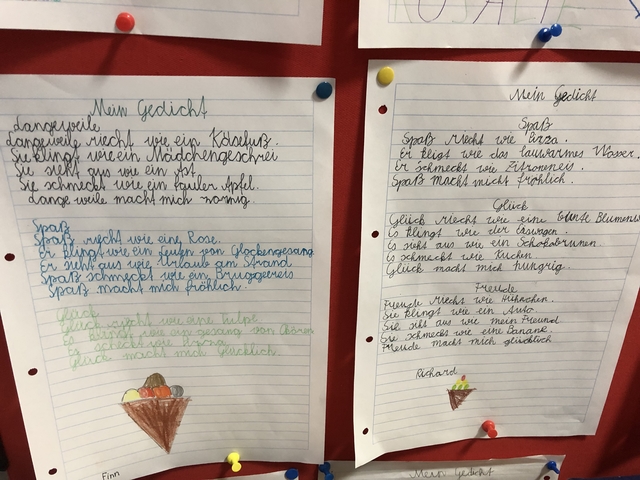 ROSALIE
Mein Gedicht
Langeweile
Langeweile riecht wie ein Käsefuß.
Sie klingt wie ein Mädchengeschrei
Sie sieht aus wie ein Ast
Sie schmeckt wie ein fauler Apfel.
Lange weile macht mich zornig.
Spaß
Spaß riecht wie eine Rose.
Er klingt wie ein von Glockengesang
Er sieht aus wie Urlaub am Strand
Spaß schmeckt wie ein
Spaß macht mich fröhlich.
Glück
Glück riecht wie eine Tulpe
Es klingt wie ein gesang von
Es wie
Glück macht mich Glücklich.
Finn
Mein Gedicht
Spaß
Spaß riecht wie Pizza.
Er wie das lauwarmes Wasser.
Er schmeckt wie Zitroneneis.
Spaß macht mich fröhlich.
Glück
Glück riecht wie eine bunte
Es klingt wie der
Es sieht aus wie ein Schokobrunen.
Es schmeckt wie Kuchen
Glück macht mich hungrig.
Freude
Freude riecht wie Hühnchen.
Sie klingt wie ein Auto
Sie aus wie mein Freund
Sie schmeckt wie eine Banane.
Freude macht mich glücklich
Richard
Mein Gedicht